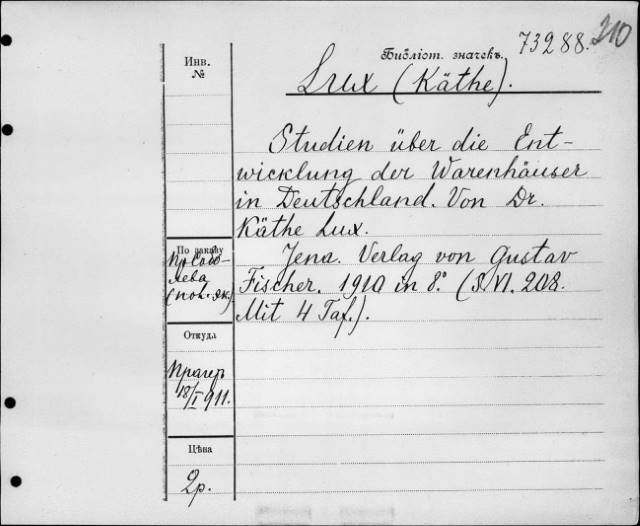 73288. 210
Инв.
№
Библіот. значекъ.
Lux (Käthe).
Studien über die Ent-
wicklung der Warenhäuser
in Deutschland. Von Dr.
Käthe Lux.
Jena. Verlag von Gustav
Fischer. 1910 in 8.° (S. VI. 208.
Mit 4 Taf.).
По заказу
Откуда
Прагеръ
18/I 911.
Цѣна
2р.